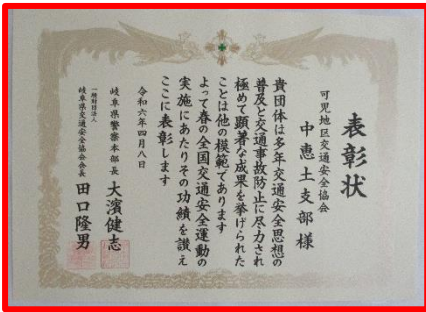 表彰状
可児地区交通安全協会
中恵土支部様
貴団体は多年交通安全思想の
普及と交通事故防止に尽力され
極めて顕著な成果を挙げられた
ことは他の模範であります
よって春の全国交通安全運動の
実施にあたりその功績を讃え
ここに表彰します
令和六年四月八日
岐阜県警察本部長 大濱健志
一般財団法人
岐阜県交通安全協会会長 田口隆男